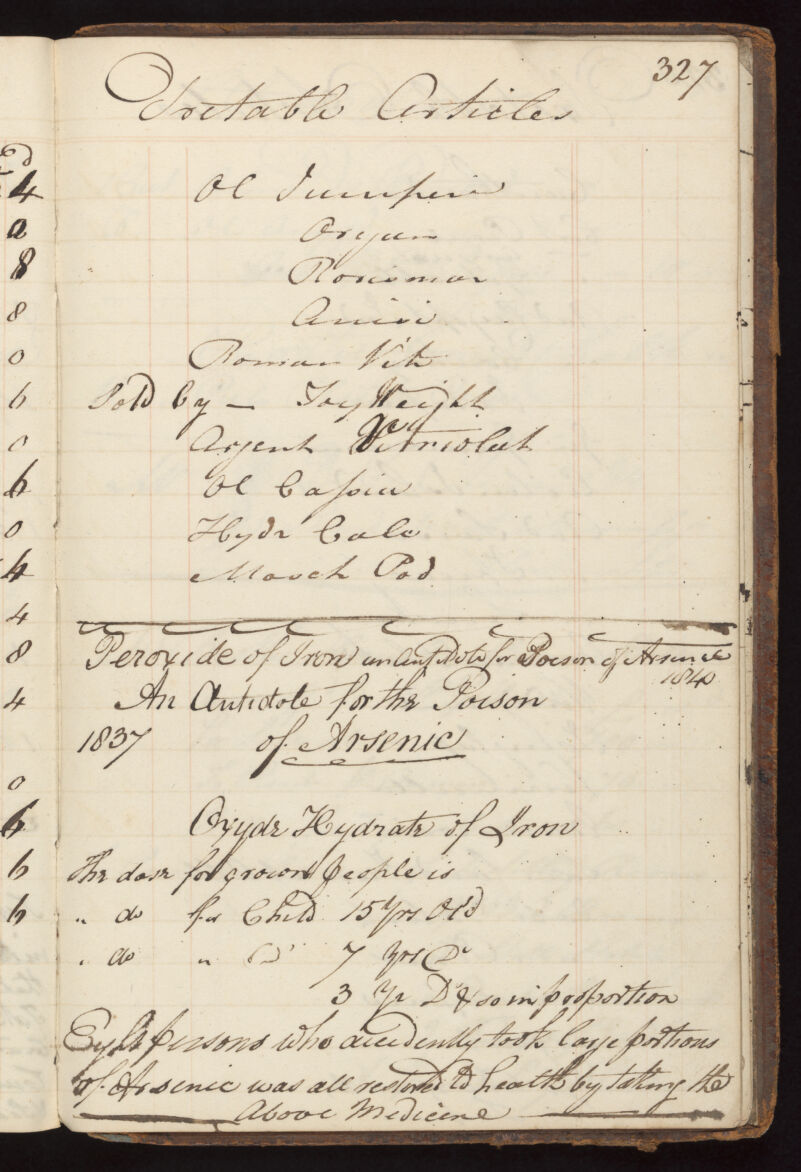 327
Articles
Ol Juniperi
Organ
Rorismar
Anisi
Roman Vit
Sold by — Troy Weight
Argent Vitriolat
Ol Cassia
Hydr Calc
Mosch Pod
Peroxide of Iron an antidote for Poison of Arsenic
1840
An Antidote for the Poison
1837 of Arsenic
Oxyde Hydrate of Iron
The dose for grown people is
" do for Child 15 yrs Old
" do " Do 7 yrs Do
3 yr Do & so in proportion
persons who accidently took large portions
of Arsenic was all restored to health by taking the
Above Medicine
4
a
8
8
0
6
0
6
0
4
4
8
4
0
6
6
6